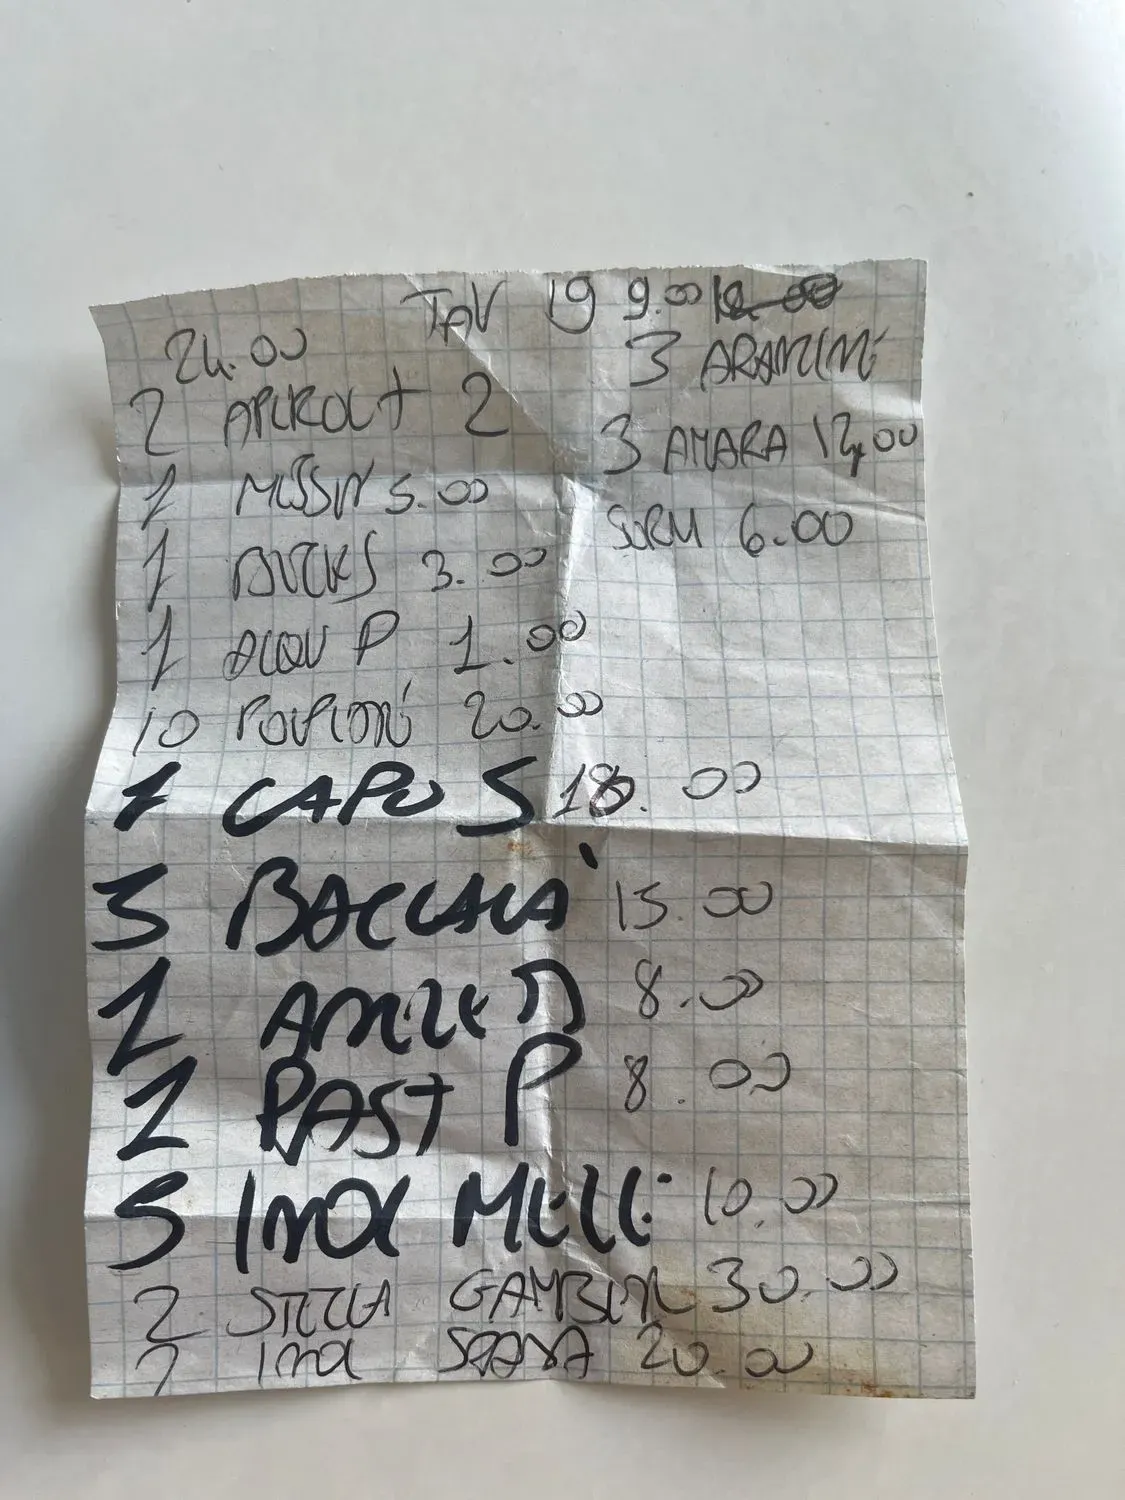 TAV 19 9.00
24.00
3 ARANCINI
2 APEROL + 2
3 AMARA 12,00
1 MESSIN 5.00
SORM 6.00
1 BECKS 3.00
1 ACQU P 1.00
10 POLPIONI 20.00
1 CAPO S 18.00
3 BACCALA' 15.00
1 8.00
2 PAST P 8.00
5 INVOL MELL: 10.00
2 STECCA GAMBER 30.00
2 INVOL SPADA 20.00